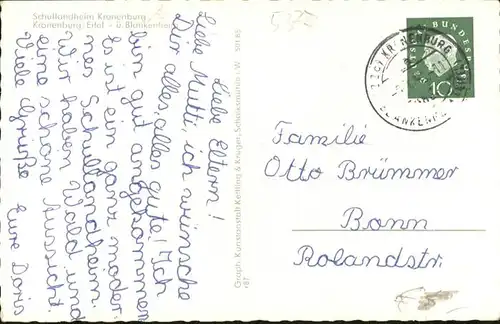 Schullandheim Kronenburg
Kronenburg: Eifel - ü. Blankenheim
5373
Liebe Eltern!
Liebe Mutti, ich wünsche
Dir alles, alles gute! Ich
bin gut angekommen.
Es ist ein ganz moder-
nes Schullandheim.
Wir haben Wald und
eine schöne Aussicht.
Viele Grüße Eure Doris
Graph. Kunstanstalt Kettling & Krüger, Schalksmühle i. W.
187
DEUTSCHE BUNDESPOST
10
KRONENBURG
Familie
Otto Brümmer
Bonn
Rolandstr.